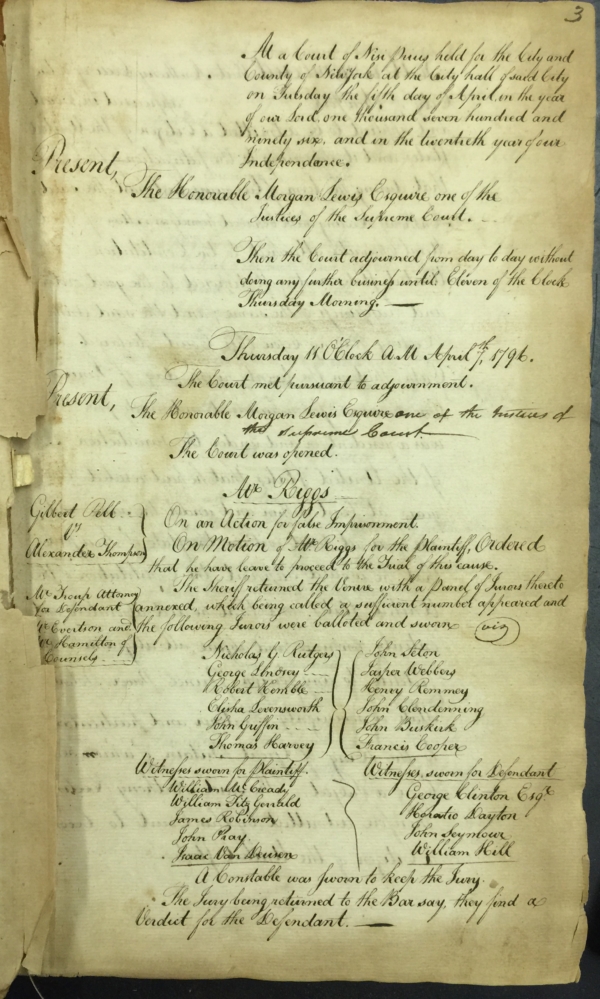 3
At a Court of Nisi Prius held for the City and
County of New York at the City hall of said City
on Tuesday the fifth day of April in the year
of our Lord one thousand seven hundred and
ninety six, and in the twentieth year of our
Independance.
Present,
The Honorable Morgan Lewis Esquire one of the
Justices of the Supreme Court.
Then the Court adjourned from day to day without
doing any further business until Eleven of the Clock
Thursday Morning.
Thursday 11 O'Clock AM April 7th, 1796.
The Court met pursuant to adjournment.
Present,
The Honorable Morgan Lewis Esquire one of the Justices of
the Supreme Court
The Court was opened.
Mr Riggs
Gilbert Pell
vs
Alexander Thompson
On an Action for false Imprisonment.
On Motion of Mr Riggs for the Plaintiff, Ordered
that he have leave to proceed to the Trial of this cause.
Mr Troup Attorney
for Defendant
Mr Evertson and
Mr Hamilton of
Counsels
The Sheriff returned the Venire with a Panel of Jurors thereto
annexed, which being called a sufficient number appeared and
the following Jurors were balloted and sworn viz
Nicholas G Rutgers
George Lindsey
Robert Kemble
Elisha Levensworth
John Griffin
Thomas Harvey
John Seton
Jasper Webbers
Henry Remmey
John Clendenning
John Buskirk
Francis Cooper
Witnesses sworn for Plaintiff.
William McCready
William Fitz Gerrald
James Robinson
John Pray
Isaac Van Deusen
Witnesses, sworn for Defendant
George Clinton Esqr
Horatio Dayton
John Seymour
William Hill
A Constable was sworn to keep the Jury.
The Jury being returned to the Bar say, they find a
Verdict for the Defendant.